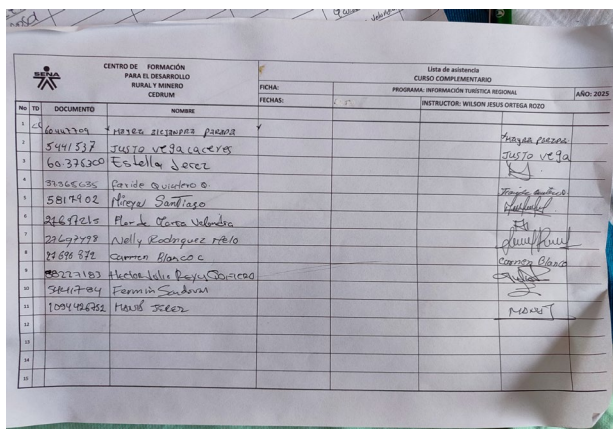 SENA
CENTRO DE FORMACIÓN
PARA EL DESARROLLO
RURAL Y MINERO
CEDRUM
Lista de asistencia
CURSO COMPLEMENTARIO
FICHA:
PROGRAMA: INFORMACIÓN TURÍSTICA REGIONAL
AÑO: 2025
FECHAS:
INSTRUCTOR: WILSON JESUS ORTEGA ROZO
No TD DOCUMENTO NOMBRE
1 MAYRA ALEJANDRA PARADA MAYRA PARADA
2 5441537 JUSTO vega caceres JUSTO vega
3 60.376300 Estella Jerez
4 37365635 Faride Quintero Q.
5 5817902 Mireya Santiago
6 Flor de Maria
7 27697798 Nelly Rodriguez Melo
8 27698872 Carmen Blanco C Carmen Blanco
9 88227183 Hector Julio
10 Fermin Sandoval
11 1094426752 Jerez
12
13
14
15